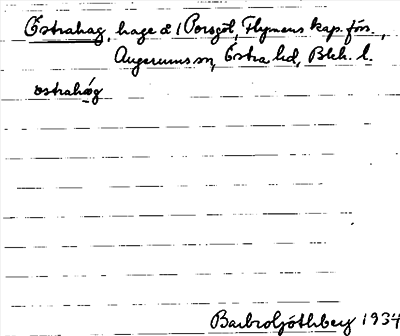 Östrahag, hage å 1 Porsgöl, Flymens kap. förs.,
Augerums sn, Östra hd, Blek. l.
ostrahag
Barbro Ljóthberg 1934